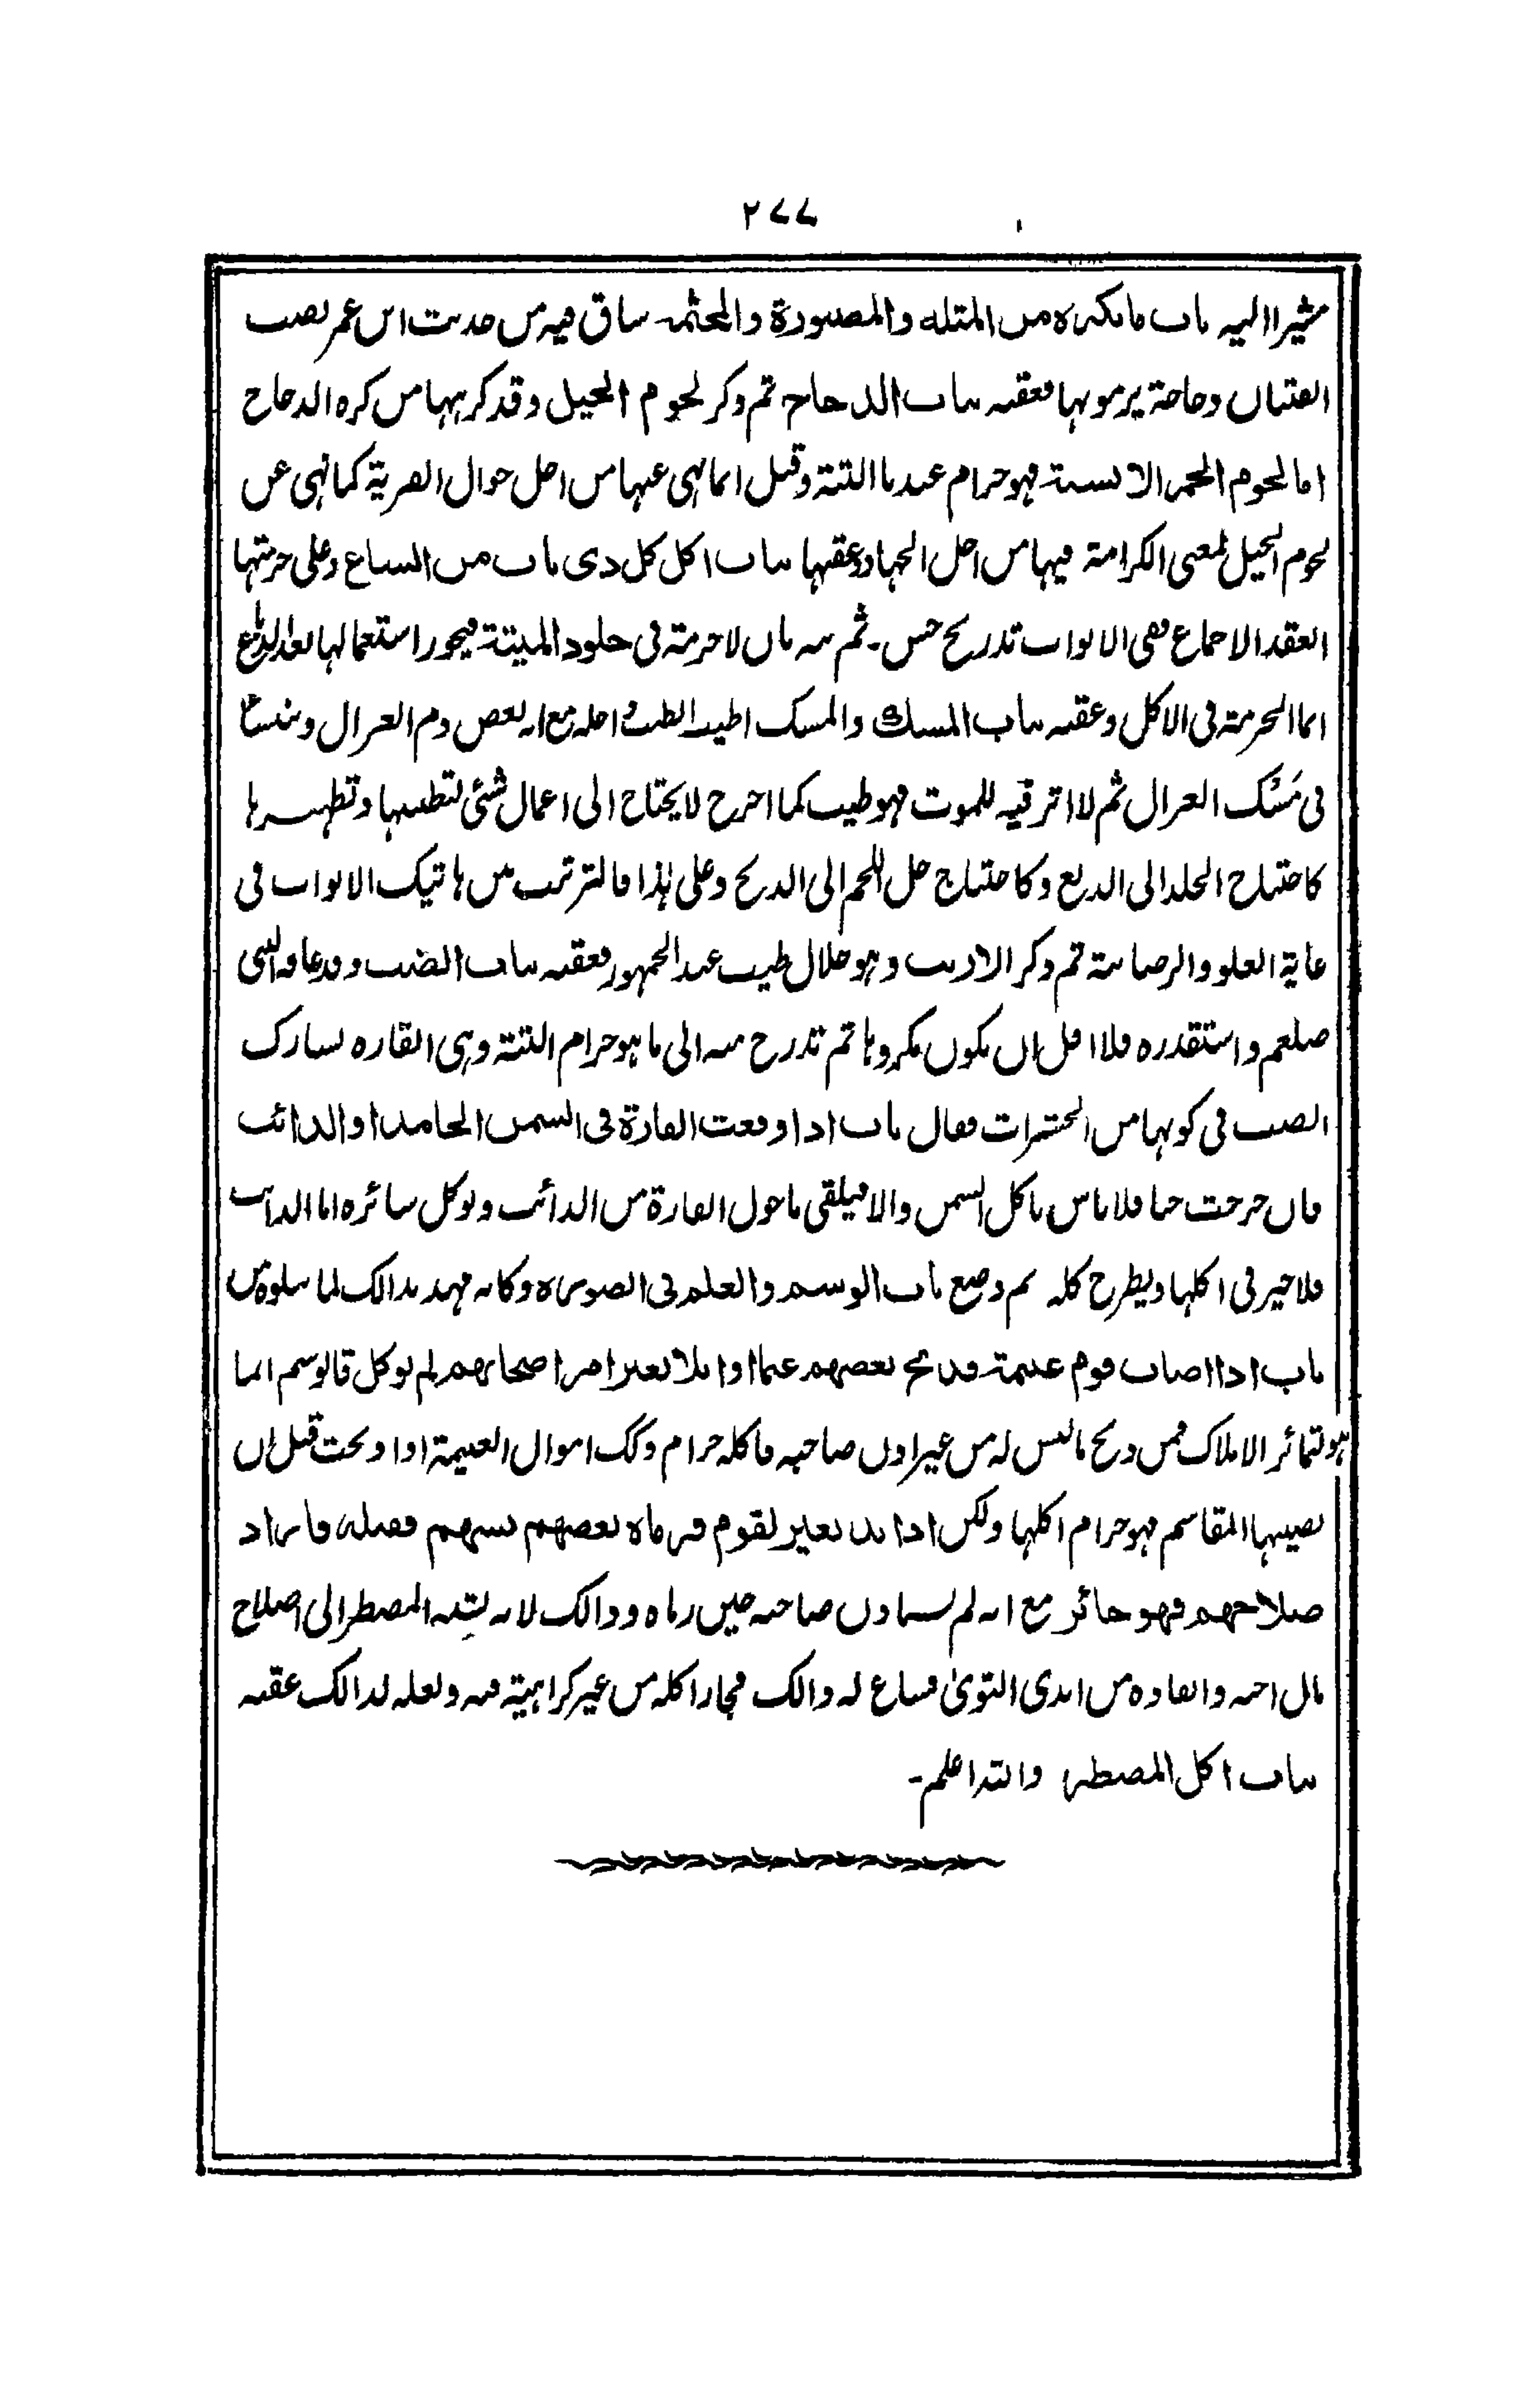 ٢٧٧
مشیرا الیہ باب ما یکرہ من المثلہ والمصبورة والمجثمہ ساق فیہ من حدیث ابن عمر نصب
الفتیان دجاجة یرمونہا فعقبہ بباب الدجاج ثم ذکر لحوم الخیل وقد کرہہا من کرہ الدجاج
اما لحوم الحمر الانسیة فہو حرام عندنا البتة وقیل انما نہی عنہا من اجل جوال القریة کما نہی عن
لحوم الخیل لمعنی الکرامة فیہا من اجل الجہاد وعقبہا بباب اکل کل ذی ناب من السباع وعلی حرمتہا
انعقد الاجماع ففی الابواب تدریج حسن۔ ثم نبہ بان لا حرمة فی جلود المیتة فیجوز استعمالہا بعد الدباغ
انما الحرمة فی الاکل وعقبہ بباب المسک والمسک اطیب الطیب احلہ مع انہ بعض دم الغزال
فی مَسْک الغزال ثم لا اثر فیہ للموت فہو طیب کما اخرج لا یحتاج الی اعمال شئی لتطیبہا وتطہیرہا
کاحتیاج الجلد الی الدبغ وکاحتیاج حل اللحم الی الذبح وعلی ہذا فالترتیب من ہاتیک الابواب فی
غایة العلو والرصانة ثم ذکر الارنب وہو حلال طیب عند الجمہور فعقبہ بباب الضب وقد عافہ النبی
صلعم واستقذرہ فلا اقل ان یکون مکروہا ثم تدرج منہ الی ما ہو حرام البتة وہی الفارہ تشارک
الضب فی کونہا من الحشرات فقال باب اذا وقعت الفارة فی السمن الجامد او الذائب
فان خرجت حیا فلا باس باکل السمن والا فیلقی ما حول الفارة من الذائب ویوکل سائرہ اما الذائب
فلا خیر فی اکلہا ویطرح کلہ ثم وضع باب الوسم والعلم فی الصورہ وکانہ مہد بذالک لما یتلوہ من
باب اذا اصاب قوم غنیمة فذبح بعضہم غنما او ابلا بغیر امر اصحابہم لم یوکل فالوسم انما
ہو لتمائز الاملاک فمن ذبح ما لیس لہ من غیر اذن صاحبہ فاکلہ حرام وکک اموال الغنیمة اذا ذبحت قبل ان
نصیبہا المقاسم فہو حرام اکلہا ولکن اذا ند بعیر لقوم فرماہ بعضہم بسہم فقتلہ فاراد
صلاحہم فہو جائز مع انہ لم یستاذن صاحبہ حین رماہ وذالک لانہ یشبہ المضطر الی اصلاح
مال اخیہ وانقاذہ من ایدی التویٰ فساغ لہ ذالک فجاز اکلہ من غیر کراہیة فیہ ولعلہ لذالک عقبہ
بباب اکل المضطر واللہ اعلم۔